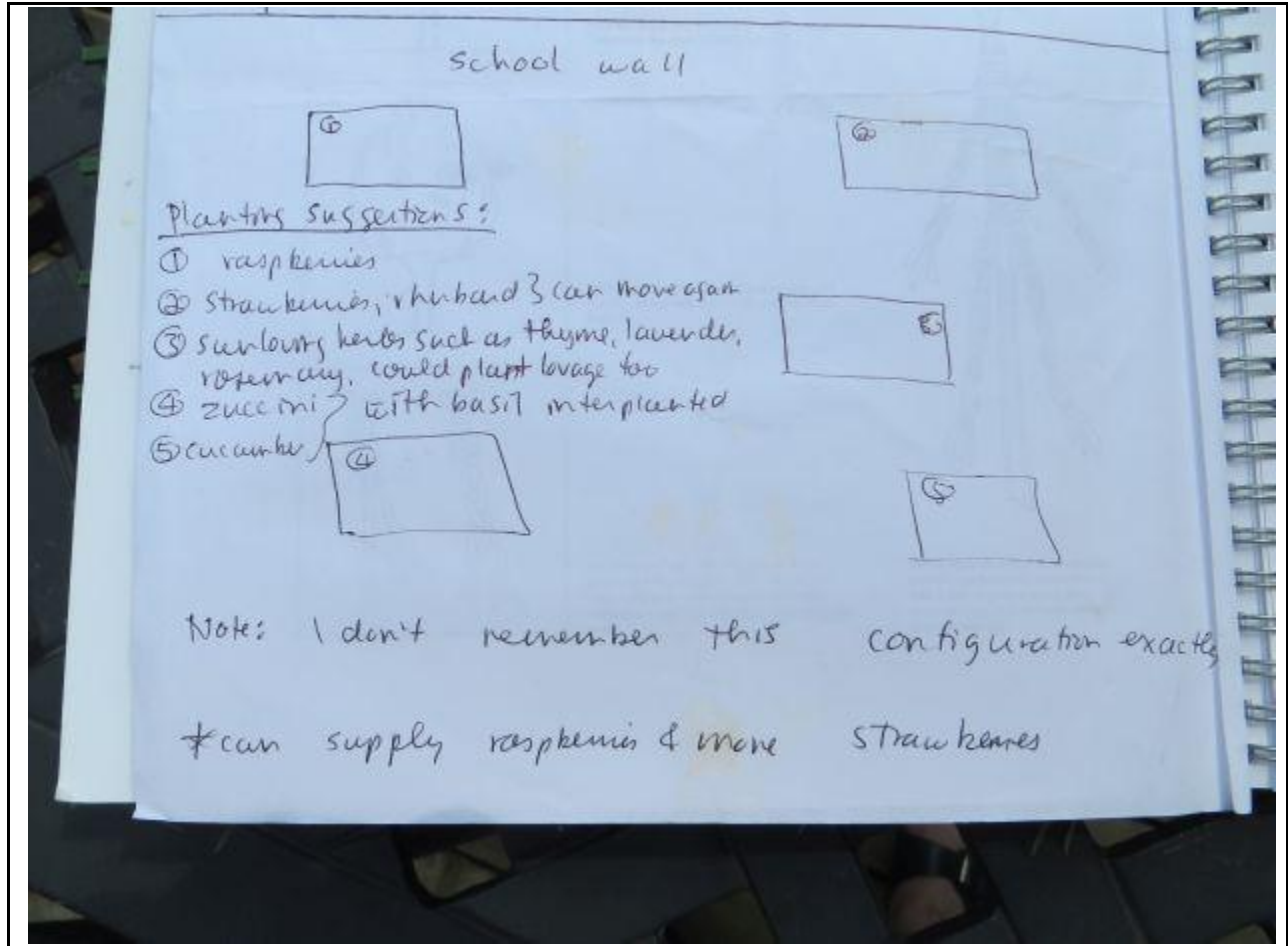 school wall
① ②
Planting suggestions:
① raspberries
② strawberries, rhubard } can move again
③ sunloving herbs such as thyme, lavender,
rosemary, could plant lovage too
③
④ zuccini } with basil interplanted
⑤ cucumber
④ ⑤
Note: I don't remember this configuration exactly
*can supply raspberries & more strawberries